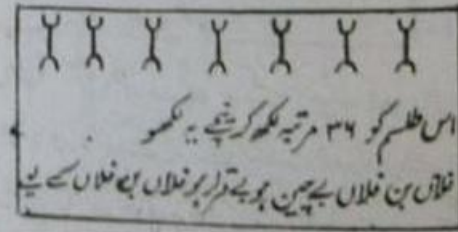 اس طلسم کو ۳۶ مرتبہ لکھ کر نیچے یہ لکھو
فلاں بن فلاں بے چین ہو بے قرار ہو فلاں بن فلاں کے لیے